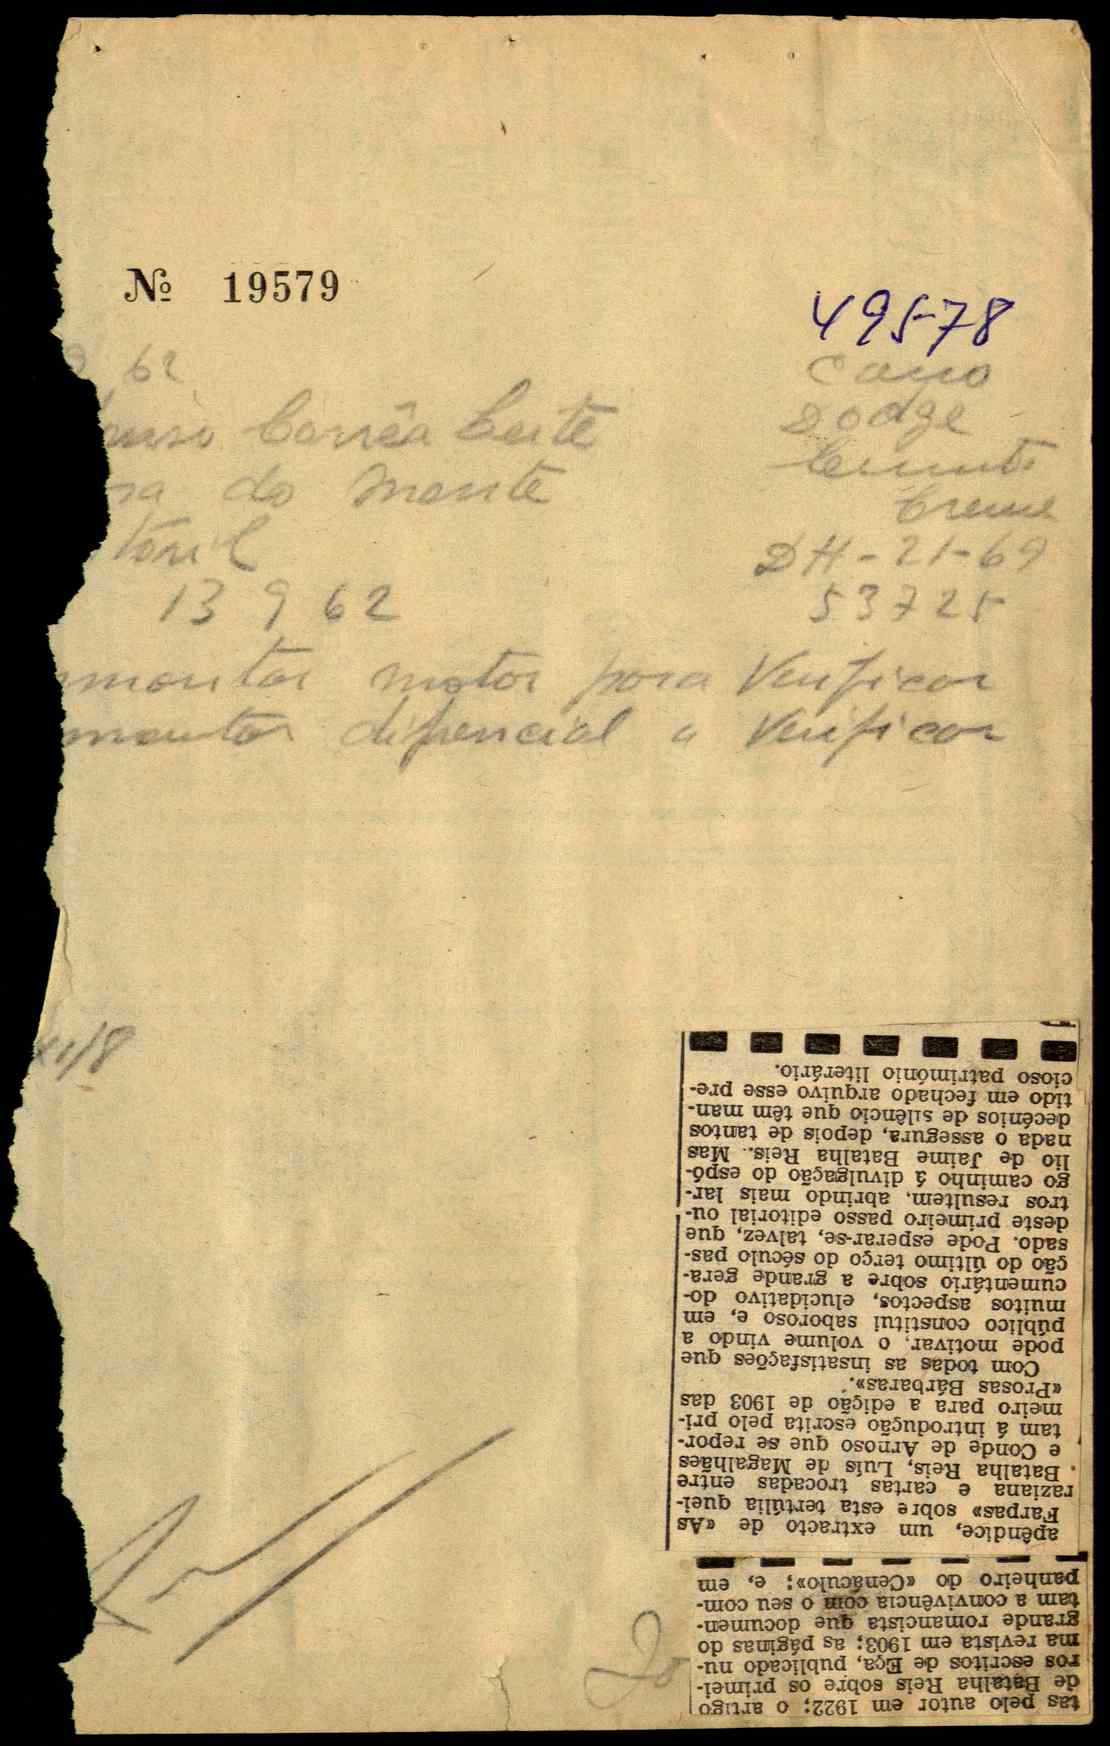 № 19579
49578
62
Corrêa Leite
Dodge
do Monte
Creme
toril
DH-21-69
13 9 62
53725
montar motor para Verificar
montar diferencial a Verificar
tas pelo autor em 1922; o artigo
de Batalha Reis sobre os primei-
ros escritos de Eça, publicado nu-
ma revista em 1903; as páginas do
grande romancista que documen-
tam a convivência com o seu com-
panheiro do «Cenáculo»; e, em
apêndice, um extracto de «As
Farpas» sobre esta tertúlia quei-
raziana e cartas trocadas entre
Batalha Reis, Luís de Magalhães
e Conde de Arnoso que se repor-
tam á introdução escrita pelo pri-
meiro para a edição de 1903 das
«Prosas Bárbaras».
Com todas as insatisfações que
pode motivar, o volume vindo a
público constitui saboroso e, em
muitos aspectos, elucidativo do-
cumentário sobre a grande gera-
ção do último terço do século pas-
sado. Pode esperar-se, talvez, que
deste primeiro passo editorial ou-
tros resultem, abrindo mais lar-
go caminho á divulgação do espó-
lio de Jaime Batalha Reis. Mas
nada o assegura, depois de tantos
decénios de silêncio que têm man-
tido em fechado arquivo esse pre-
cioso património literário.